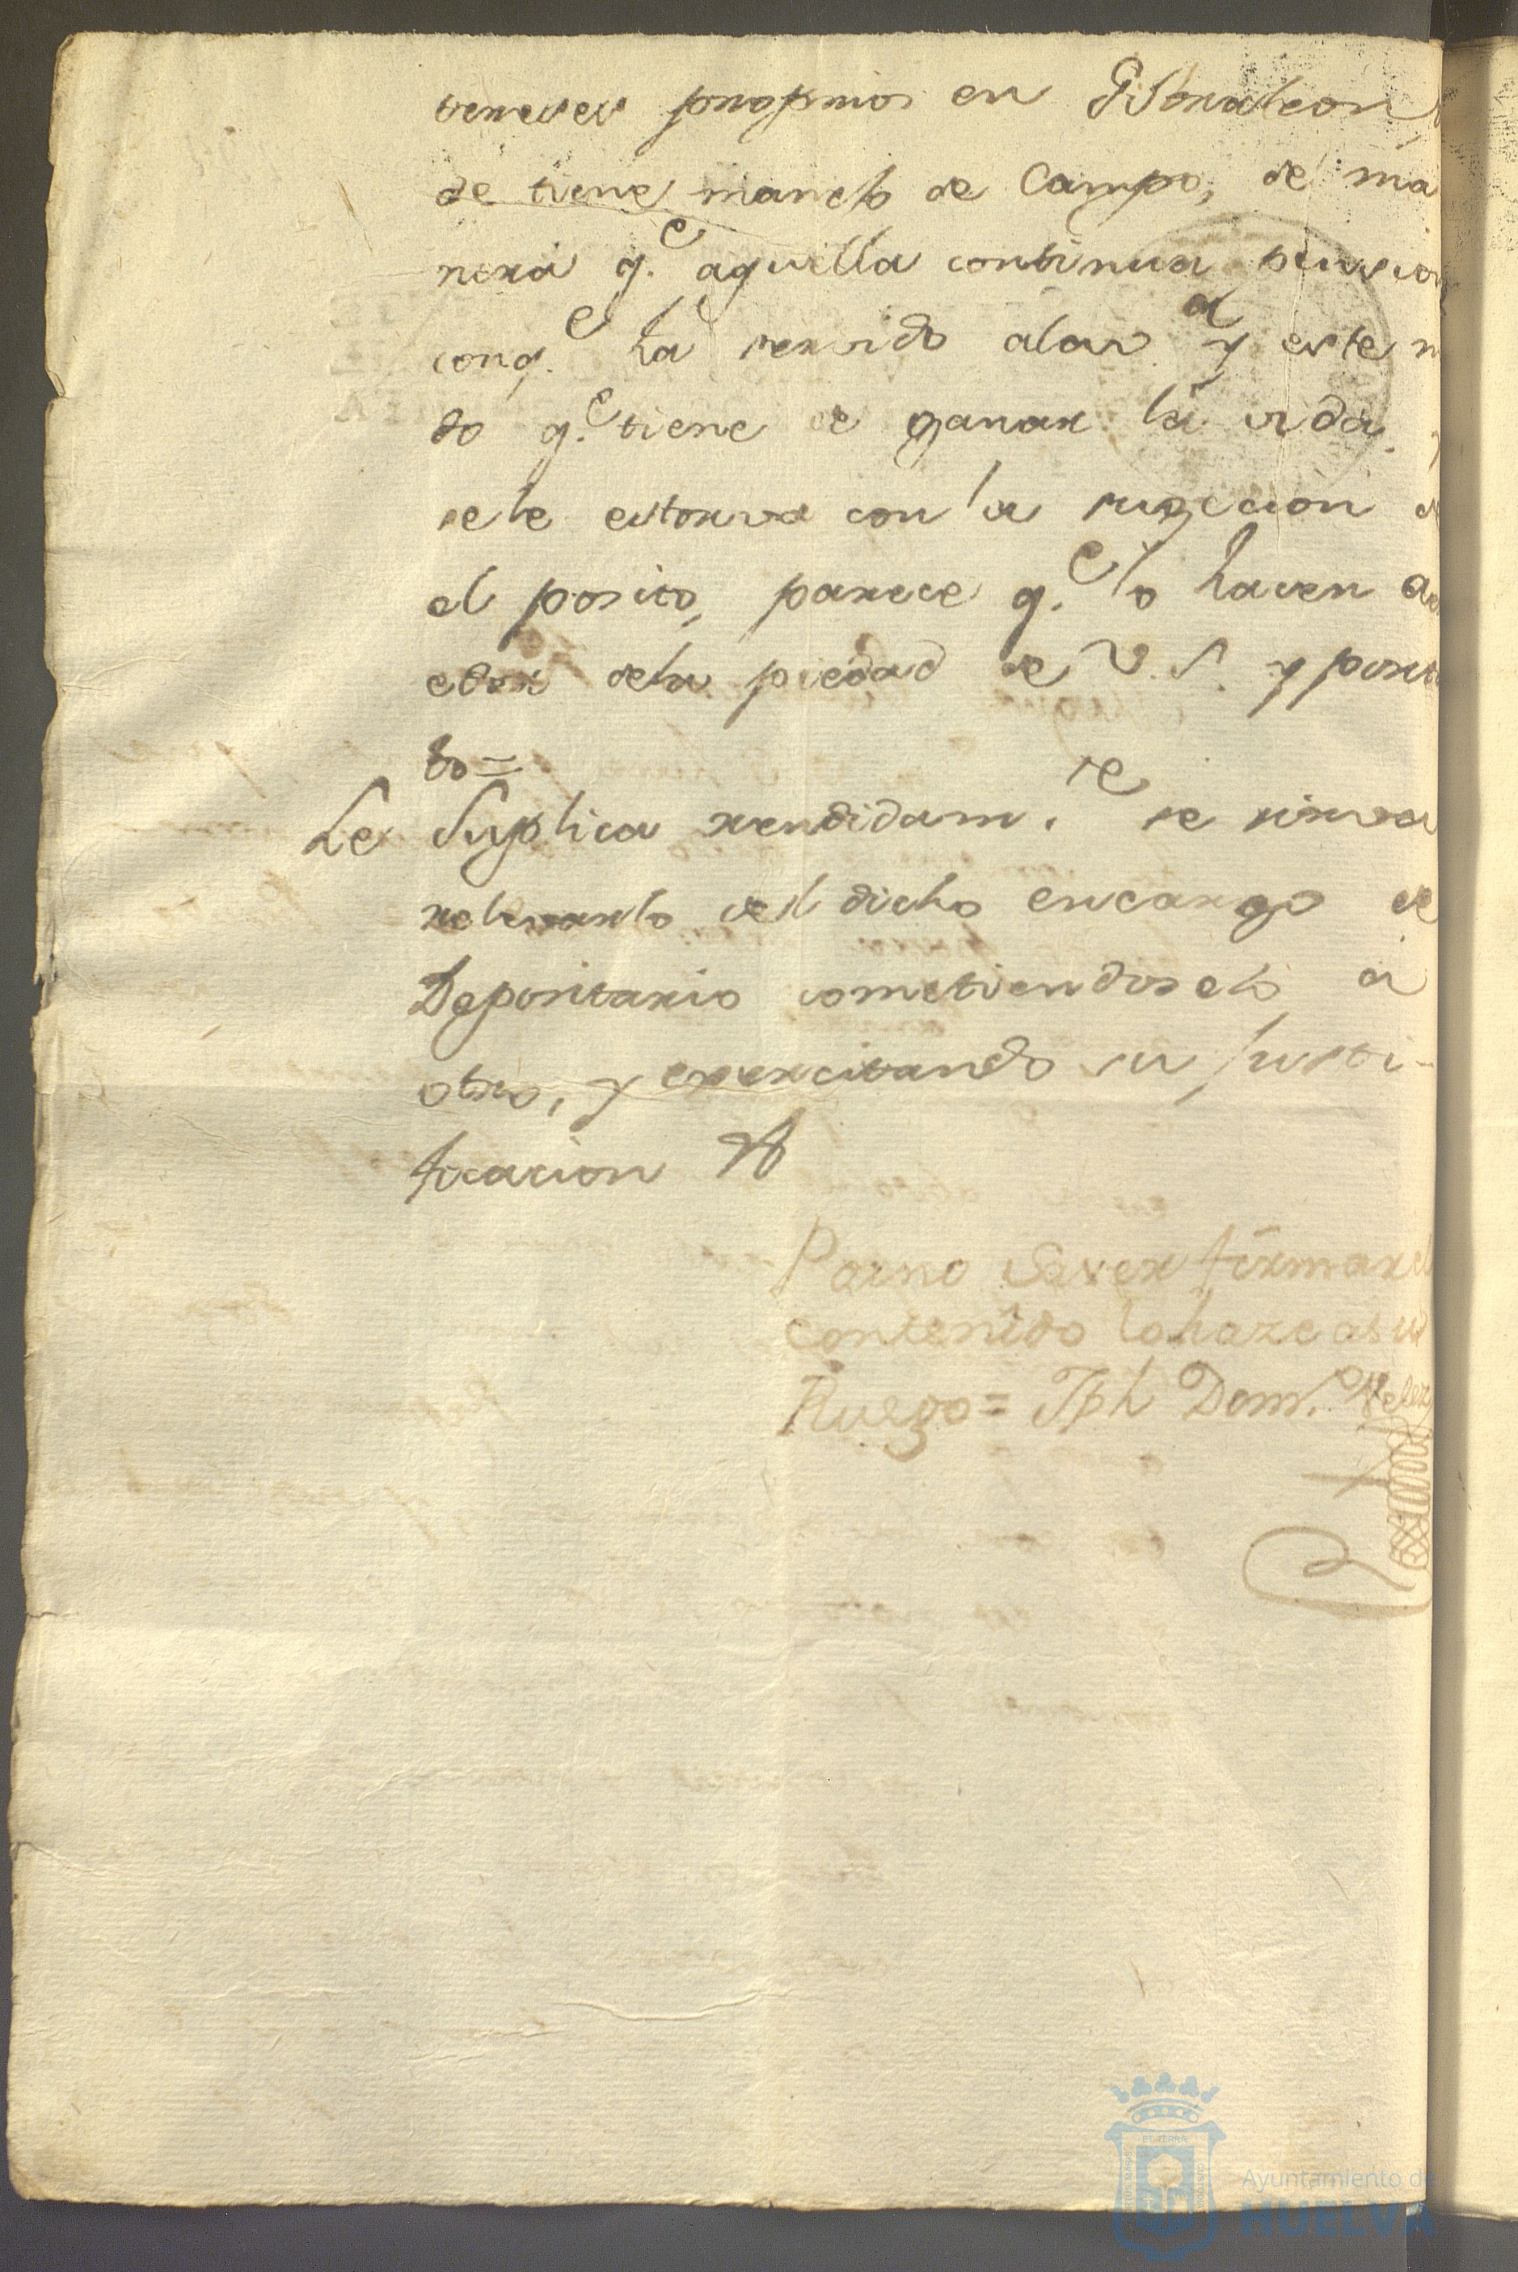 veneses propios en Gibraleon
de tiene manejo de Campo, de ma
nera q.e aquella continua pension
conq.e ha servido alav a y este m
do q.e tiene de ganar la vida
se le estorva con la sugecion d
el posito, parece q.e lo hacen
edor dela piedad de V. S. y porta
to =
Le Suplica rendidam.te se sirva
relevarlo del dicho encargo de
Depositario cometiendoselo á
otro, y exercitando su Justi-
ficacion &
Porno Saver firmar el
contenido lo haze asu
Ruego = Jph Dom.o Velez
Ayuntamiento de
HUELVA